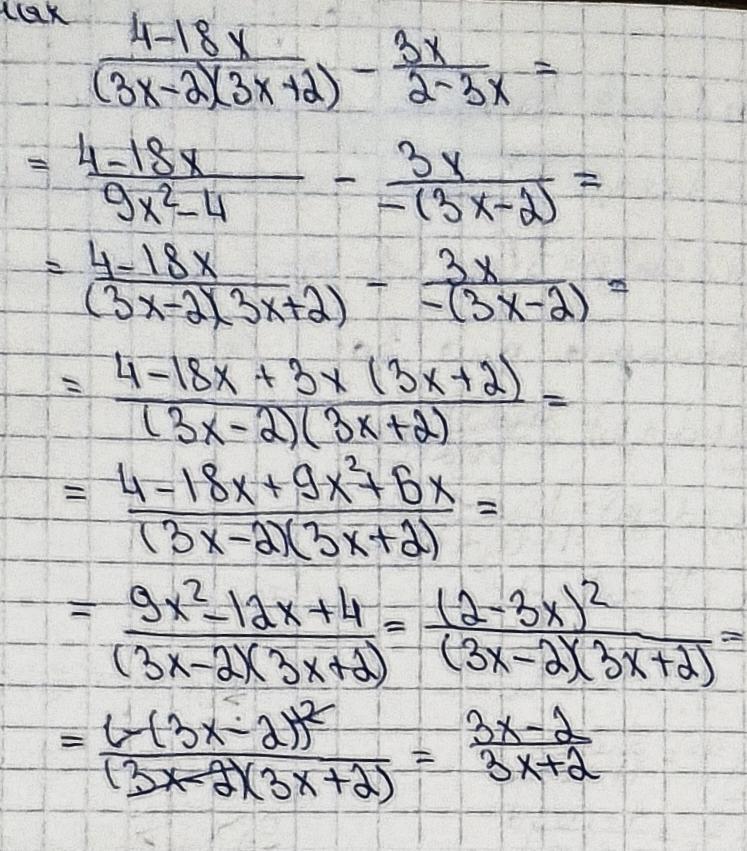 4-18x/(3x-2)(3x+2) - 3x/2-3x =
= 4-18x/9x²-4 - 3x/-(3x-2) =
= 4-18x/(3x-2)(3x+2) - 3x/-(3x-2) =
= 4-18x+3x(3x+2)/(3x-2)(3x+2) =
= 4-18x+9x²+6x/(3x-2)(3x+2) =
= 9x²-12x+4/(3x-2)(3x+2) = (2-3x)²/(3x-2)(3x+2) =
= (-(3x-2))²/(3x-2)(3x+2) = 3x-2/3x+2